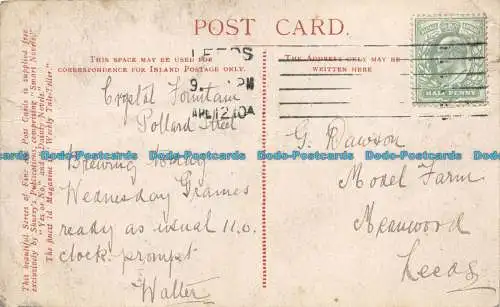 POST CARD.
THIS SPACE MAY BE USED FOR
CORRESPONDENCE FOR INLAND POSTAGE ONLY.
THE ADDRESS ONLY MAY BE
WRITTEN HERE
LEEDS
9. PM
APR 12 10A
HALF PENNY
This beautiful Series of Fine Art Post Cards is supplied free
exclusively by Shurey's Publications, comprising "Smart Novels,"
"Yes or No," and "Dainty Novels."
The finest 1d. Magazine is "Weekly Tale-Teller."
Crystal Fountain
Pollard Street
Brewing
Wednesday Grames
ready as usual 11.0.
clock prompt
Walter
G. Dawson
Model Farm
Meanwood
Leeds
Dodo-Postcards.com Dodo-Postcards.com Dodo-Postcards.com Dodo-Postcards.com